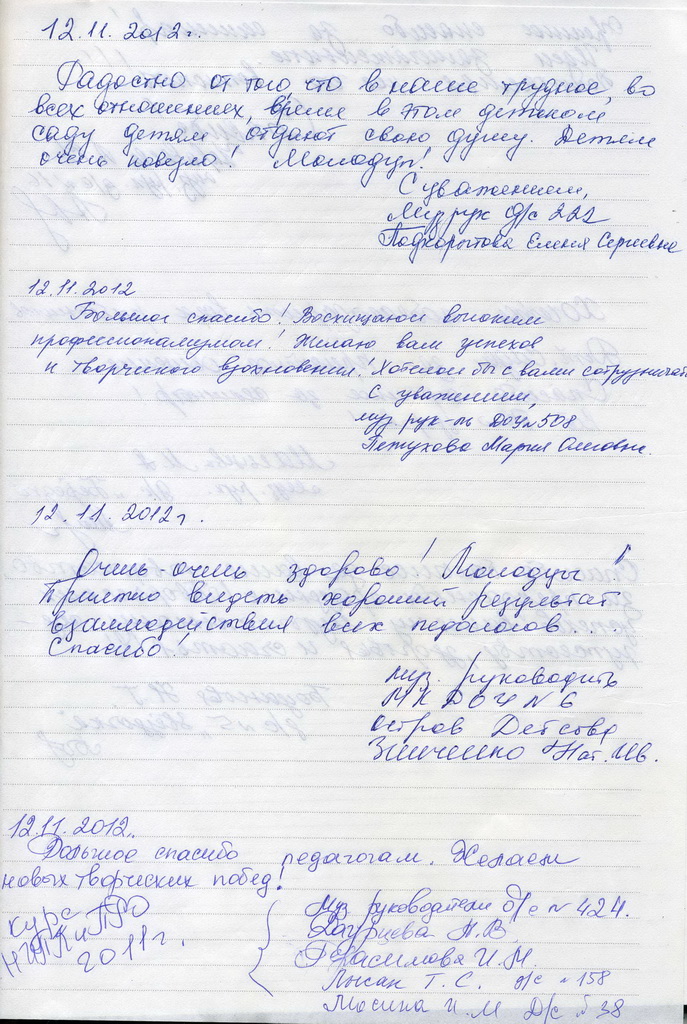 12.11.2012г.
Радостно от того, что в наше трудное, во
всех отношениях, время в этом детском
саду детям отдают свою душу. Детям
очень повезло! Молодцы!
С уважением,
Муз рук д/с 222
Подкорытова Елена Сергеевна
12.11.2012
Большое спасибо! Восхищаюсь высоким
профессионализмом! Желаю вам успехов
и творческого вдохновения! Хотелось бы с вами сотрудничать
С уважением,
муз рук-ль ДОУ №508
Петухова Мария Олеговна.
12.11.2012г.
Очень-очень здорово! Молодцы!
Приятно видеть хороший результат
взаимодействия всех педагогов...
Спасибо!
муз. руководить
МКДОУ №6
Остров Детства
Зинченко Нат. Ив.
12.11.2012.
Большое спасибо педагогам. Желаем
новых творческих побед!
Муз руководители д/с № 424.
курс
2011г.
Герасимова И.М.
Лысак Т.С. д/с №158
Мосина И.М д/с № 38